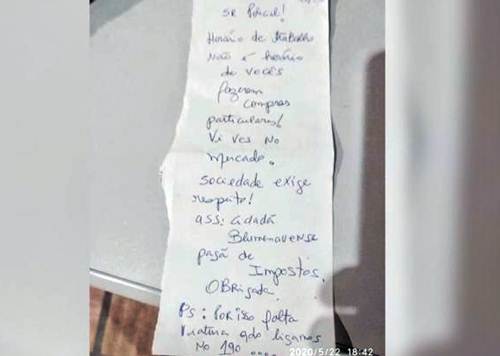 SR Policial!
Horário de trabalho
Não é horário
de vocês
fazerem
compras
particulares!
Vi vcs no
mercado.
Sociedade exige
respeito!
ass: Cidadã
Blumenavense
pagã de
Impostos.
OBRigada.
Ps: POR isso falta
Viatura qdo ligamos
No 190 ....
2020/5/22 18:42